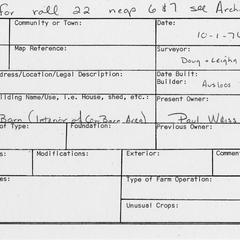 for roll 22 negs 6 & 7 see Arch
Community or Town:
Date:
10-1-76
Map Reference:
Surveyor:
Doug + Leigha
dress/Location/Legal Description:
Date Built:
Builder: Ausloos
ilding Name/Use, i.e. House, shed, etc.:
Present Owner:
Barn (Interior of Cow Barn Area)
Paul Weiss
of Type:
Foundation:
Previous Owner:
s:
Modifications:
Exterior:
Comment
es:
Type of Farm Operation:
Unusual Crops: